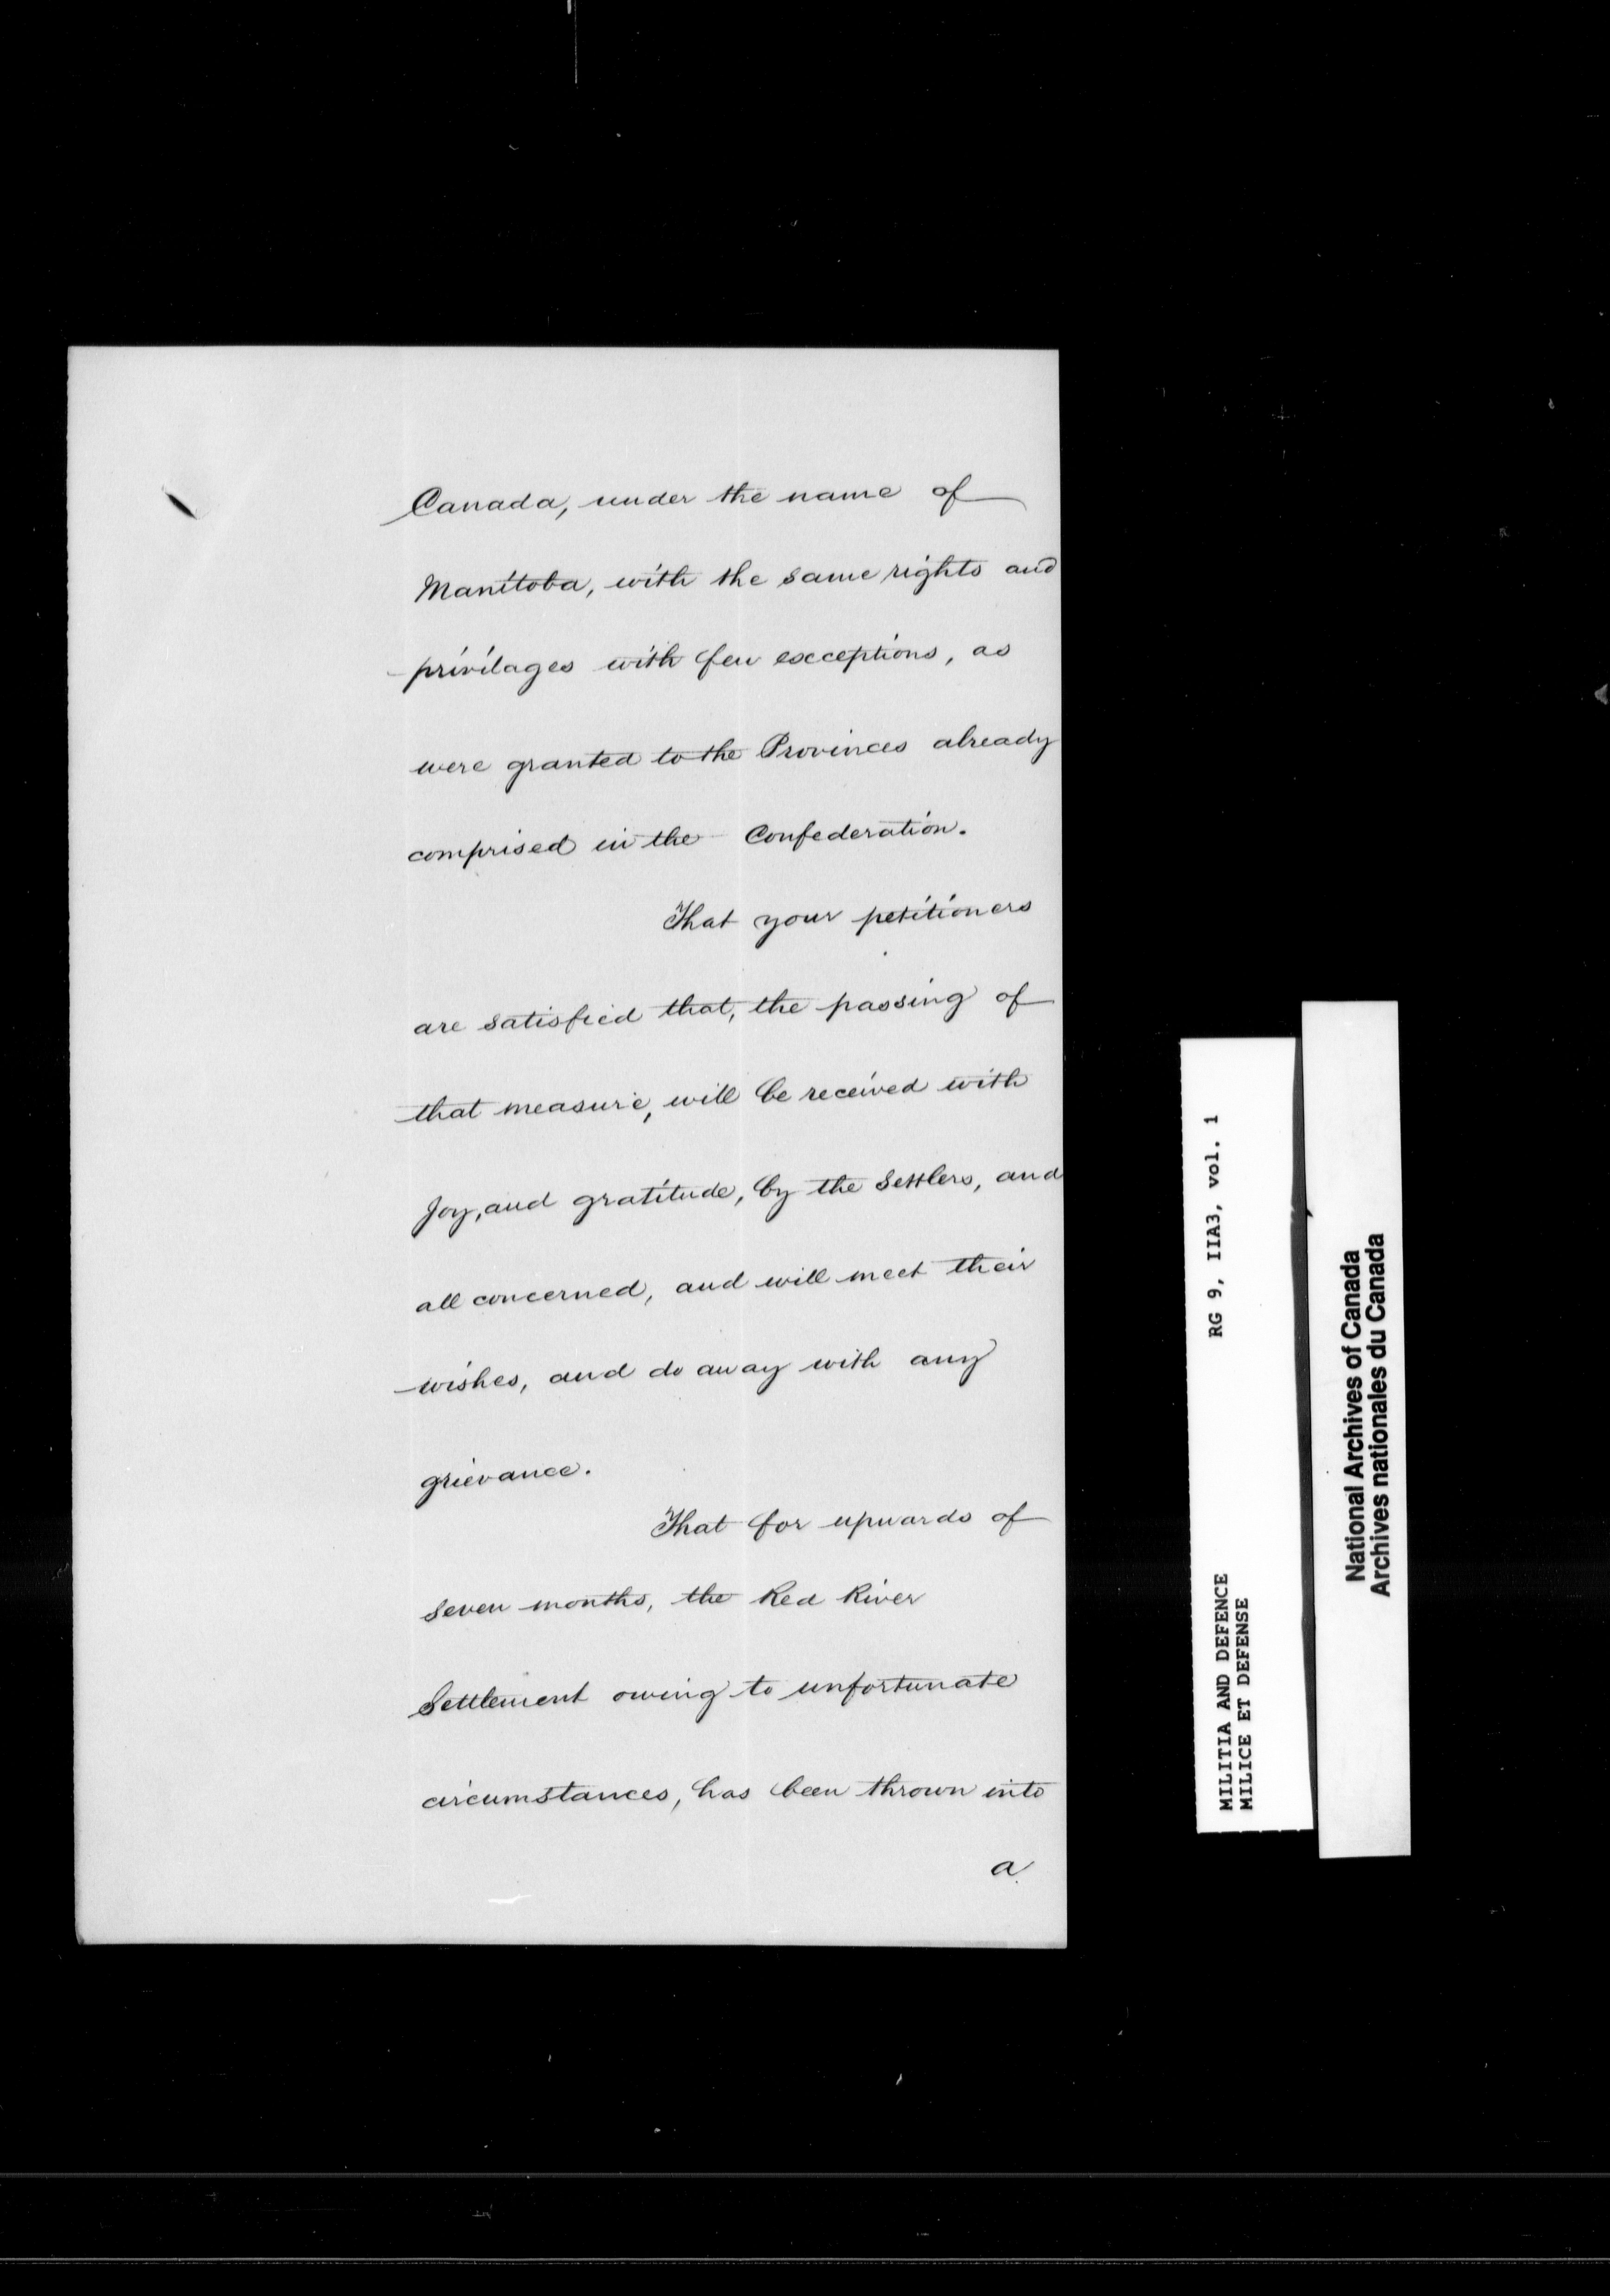 Canada, under the name of
Manitoba, with the same rights and
privilages with few exceptions, as
were granted to the Provinces already
comprised in the Confederation.
That your petitioners
are satisfied that, the passing of
that measure, will be received with
Joy, and gratitude, by the Settlers, and
all concerned, and will meet their
wishes, and do away with any
grievance.
That for upwards of
seven months, the Red River
Settlement owing to unfortunate
circumstances, has been thrown into
a
MILITIA AND DEFENCE RG 9, IIA3, vol. 1
MILICE ET DEFENSE
National Archives of Canada
Archives nationales du Canada